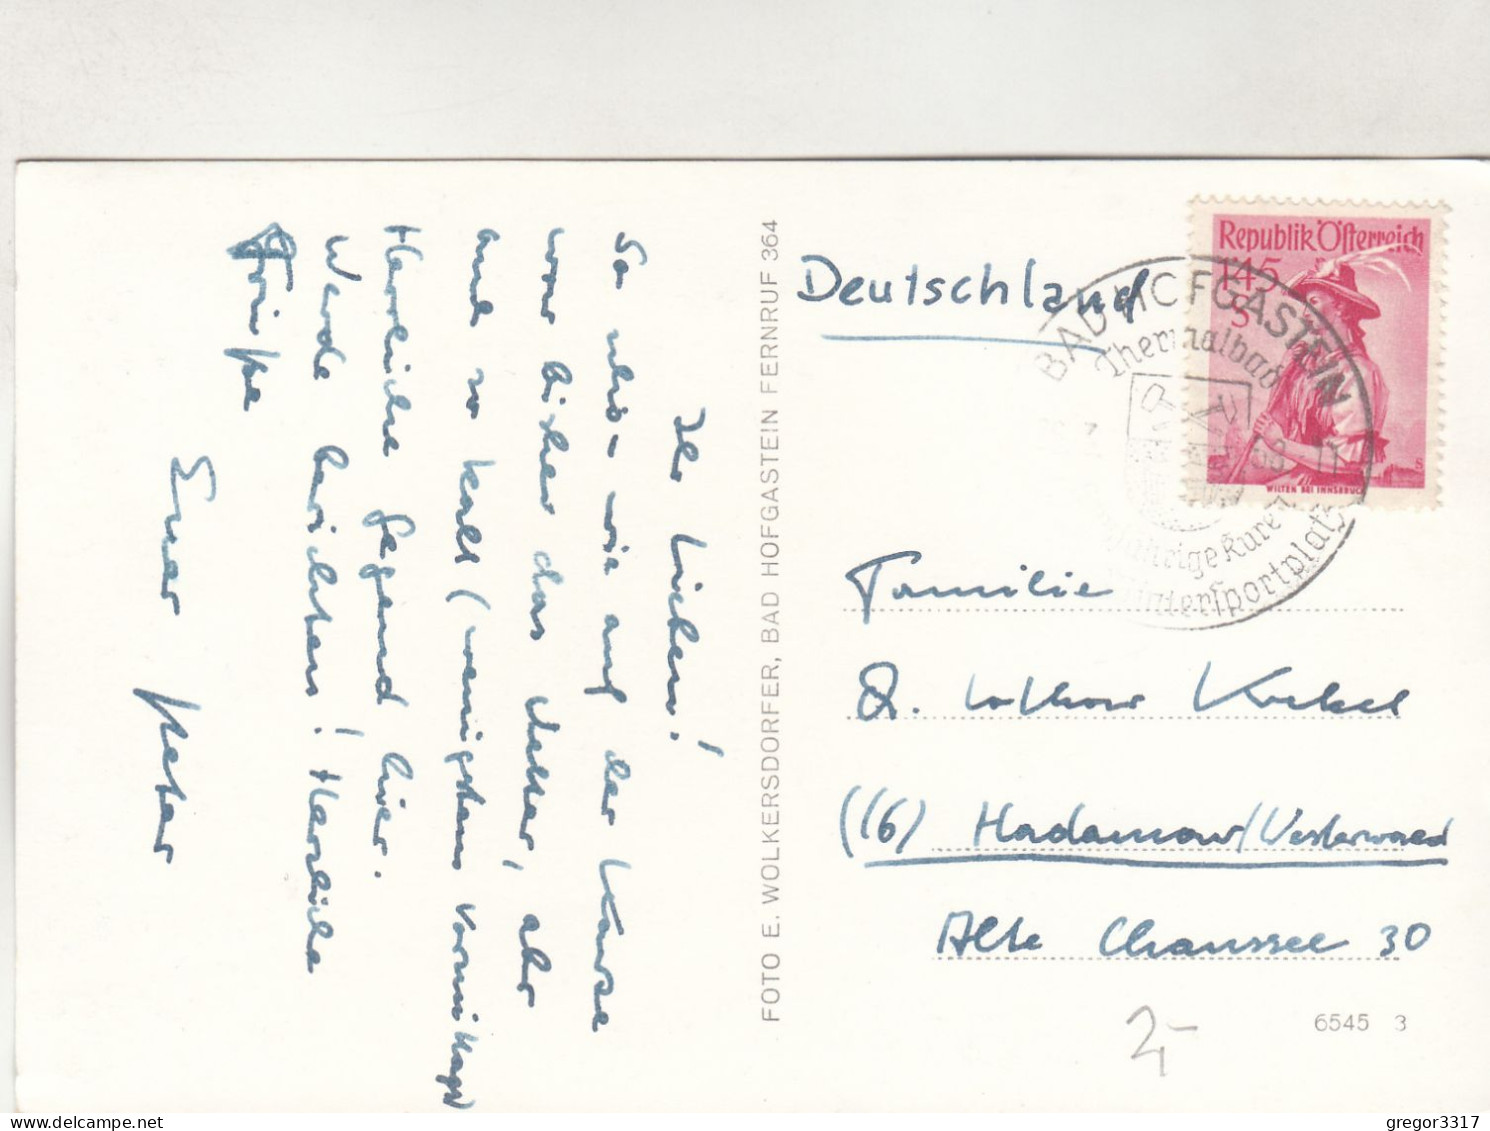 Ihr Lieben!
So wie auf der Karte
war bisher das Wetter, aber
auch so kalt (wenigstens Vormittags)
Herrliche Gegend hier.
Werde berichten! Herzliche
Grüße
Euer Peter
FOTO E. WOLKERSDORFER, BAD HOFGASTEIN FERNRUF 364
Deutschland
Republik Österreich
1'45
S
WILTEN BEI INNSBRUCK
BAD HOFGASTEIN
Thermalbad
jährige Kuren
Wintersportplatz
Familie
Lothar
(16) Hadamar/Westerwald
Alte Chaussee 30
2,-
6545 3
gregor3317